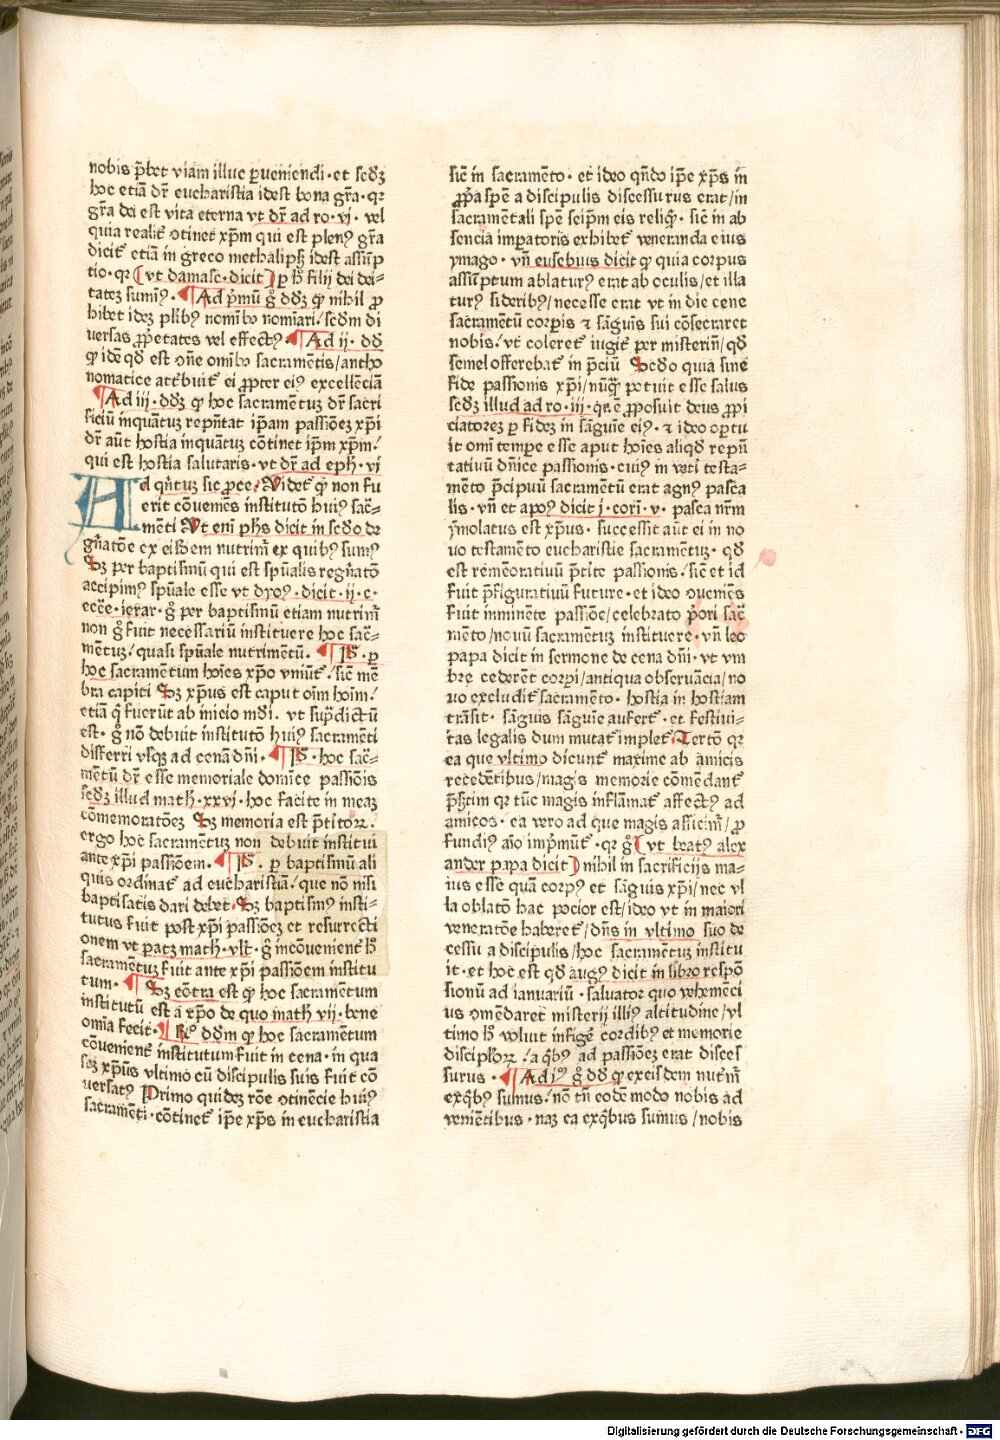 nobis p̄bet viam illuc ꝑueniendi·et scd̄ʒ
hoc etiā dr̄ eucharistia idest bona gr̄a·qꝛ
gr̄a dei est vita eterna vt dr̄ ad ro·vj· vel
quia realit̄ ↄtinet xp̄m qui est plenꝰ gr̄a
dicit̄ etiā in greco methalipsis idest assūp
tio·qꝛ (vt damasc·dicit) ꝑ h̄ filij dei dei⸗
tateʒ sumimꝰ· Ad p̄mū g̊ dd̄ʒ ꝙ nihil ꝓ
hibet ideʒ plib̄ꝰ nomībꝰ nomīari/ scd̄m di
uersas ꝓp̄etates vel effectꝰ· Ad ii· dd̄
ꝙ id̄e qd̄ est ↄ̄ne omībꝰ sacramētis/antho
nomatice atr̄buit̄ ei ꝓpter eiꝰ excellēciā
Ad iij·dd̄ʒ ꝙ hoc sacramētuʒ dr̄ sacri
ficiū inquātuʒ repn̄tat ip̄am passiōeʒ xp̄i
dr̄ aūt hostia inquātuʒ cōtinet ip̄m xp̄m/
qui est hostia salutaris·vt dr̄ ad eph·vj
Ad qn̄tuʒ sic ꝓce· Videt̄ ꝙ non fu
erit cōueniēs institutō huiꝰ sac̄⸗
mēti Vt enī ph̄s dicit in scd̄o de
gn̄atōe ex eisdem nutrim̄ ex quibꝰ sumꝰ
Sʒ per baptismū qui est spūalis regn̄atō
accipimꝰ spūale esse vt dyoꝰ·dicit·ij·c·
ecc̄e·ierar·g̊ per baptismū etiam nutrim̄
non g̊ fuit necessariū instituere hoc sac̄⸗
mētuʒ/quasi spūale nutrimētū· Pͣ·ꝑ
hoc sacramētum hoīes xp̄o vniūt̄/sic̄ mē
bra capiti Sʒ xp̄us est caput oīm hoīm/
etiā q̄ fuerūt ab inicio mūdi· vt sup̄dictū
est·g̊ nō debuit institutō huiꝰ sacramēti
differri vsqꝫ ad cenā dn̄i· Pͣ·hoc sac̄⸗
mētū dr̄ esse memoriale domīce passiōis
scd̄ʒ illud math·xxvj·hoc facite in meaʒ
cōmemoratōeʒ Sʒ memoria est p̄titoꝝ·
ergo hoc sacramētuʒ non debuit institui
ante xp̄i passiōem· Pͣ·ꝑ baptismū ali
quis ordinat̄ ad eucharistiā/que nō nisi
baptisatis dari debet·Sʒ baptismꝰ insti⸗
tutus fuit post xp̄i passiōeʒ et resurrecti
onem vt patʒ math·vlt̄·g̊ incōuenient̄ h̄
sacramētuʒ fuit ante xp̄i passiōem institu
tum· Sʒ cōtra est ꝙ hoc sacramētum
institutū est a xp̄o de quo math vij·bene
omīa fecit· Rͦ dd̄m ꝙ hoc sacramētum
cōuenient̄ institutum fuit in cena·in qua
scʒ xp̄us vltimo cū discipulis suis fuit cō
uersatꝰ Primo quideʒ rōe ↄtinēcie huiꝰ
sacramēti·cōtinet̄ ip̄e xp̄s in eucharistia
sic̄ in sacramēto·et ideo qn̄do ip̄e xp̄s in
ꝓp̄a spē a discipulis discessurus erat/in
sacramētali spē seip̄m eis reliq̄t·sic̄ in ab
sencia imꝑatoris exhibet̄ veneranda eius
ymago·vn̄ eusebius dicit ꝙ quia corpus
assūptum ablaturꝰ erat ab oculis/et illa
turꝰ sideribꝰ/necesse erat vt in die cene
sacramētū corꝑis ⁊ sāguīs sui cōsecraret
nobis/vt coleret̄ iugit̄ per misteriū/qd̄
semel offerebat̄ in p̄ciū Scd̄o quia sine
fide passionis xp̄i/nūq̄ potuit esse salus
scd̄ʒ illud ad ro·iij·quē ꝓposuit deus ꝓpi
ciatoreʒ ꝑ fideʒ in sāguīe eiꝰ·⁊ ideo oꝑtu
it omī tempe esse aput hoīes aliqd̄ repn̄
tatiuū dn̄ice passionis·cuiꝰ in veti testa⸗
mēto p̄cipuū sacramētū erat agnꝰ pasca
lis·vn̄ et apoꝰ dicit j·cori·v·pasca nr̄m
ymolatus est xp̄us·successit aūt ei in no
uo testamēto eucharistie sacramētuʒ·qd̄
est remēoratiuū p̄tite passionis/sic̄ et id
fuit p̄figuratiuū future·et ideo ↄueniēs
fuit inminēte passiōe/celebrato p̄ori sac̄
mēto/nouū sacramētuʒ instituere·vn̄ leo
papa dicit in sermone de cena dn̄i·vt vm
bre cederēt corꝑi/antiqua obseruācia/no
uo excludit̄ sacramēto·hostia in hostiam
trāsit·sāguis sāguīe aufert̄·et festiui⸗
tas legalis dum mutat̄ implet̄·Tertō qꝛ
ea que vltimo dicunt̄ maxime ab amicis
recedētibus/magis memorie cōmēdant̄
p̄sertim qꝛ tūc magis inflāmat̄ affectꝰ ad
amicos·ea vero ad que magis afficim̄/ꝓ
fundiꝰ aīo imp̄mūt̄·qꝛ g̊ (vt beatꝰ alex
ander papa dicit) nihil in sacrificijs ma⸗
ius esse quā corpꝰ et sāguis xp̄i/nec vl
la oblatō hac pocior est/ideo vt in maiori
veneratōe haberet̄/dn̄s in vltimo suo de
cessu a discipulis/hoc sacramētuʒ institu
it·et hoc est qd̄ augꝰ dicit in libro respō
sionū ad ianuariū·saluator quo vehemēci
us ↄmendaret misterij illiꝰ altitudine/vl
timo h̄ voluit infigē cordibꝰ et memorie
discipl̓oꝝ/a q̄bꝰ ad passiōeʒ erat disces
surus· Ad jꝰ g̊ dd̄ ꝙ ex eisdem nutm̄
ex q̄bꝰ sumus/nō tn̄ eodē modo nobis ad
veniētibus·naʒ ea ex q̄bus sumus/nobis
Digitalisierung gefördert durch die Deutsche Forschungsgemeinschaft - DFG